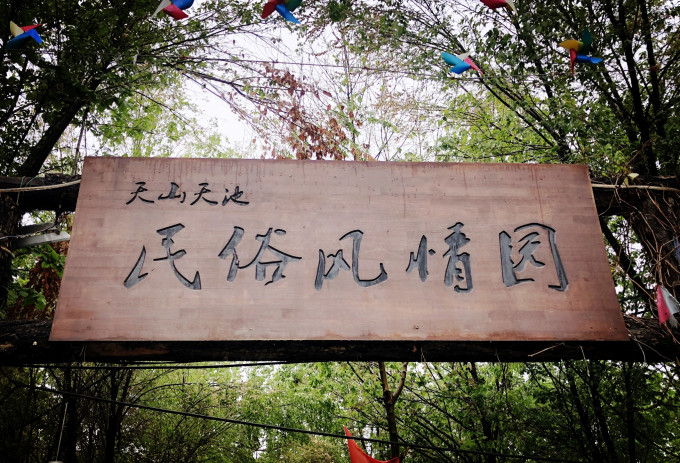 天山天池
民俗风情园